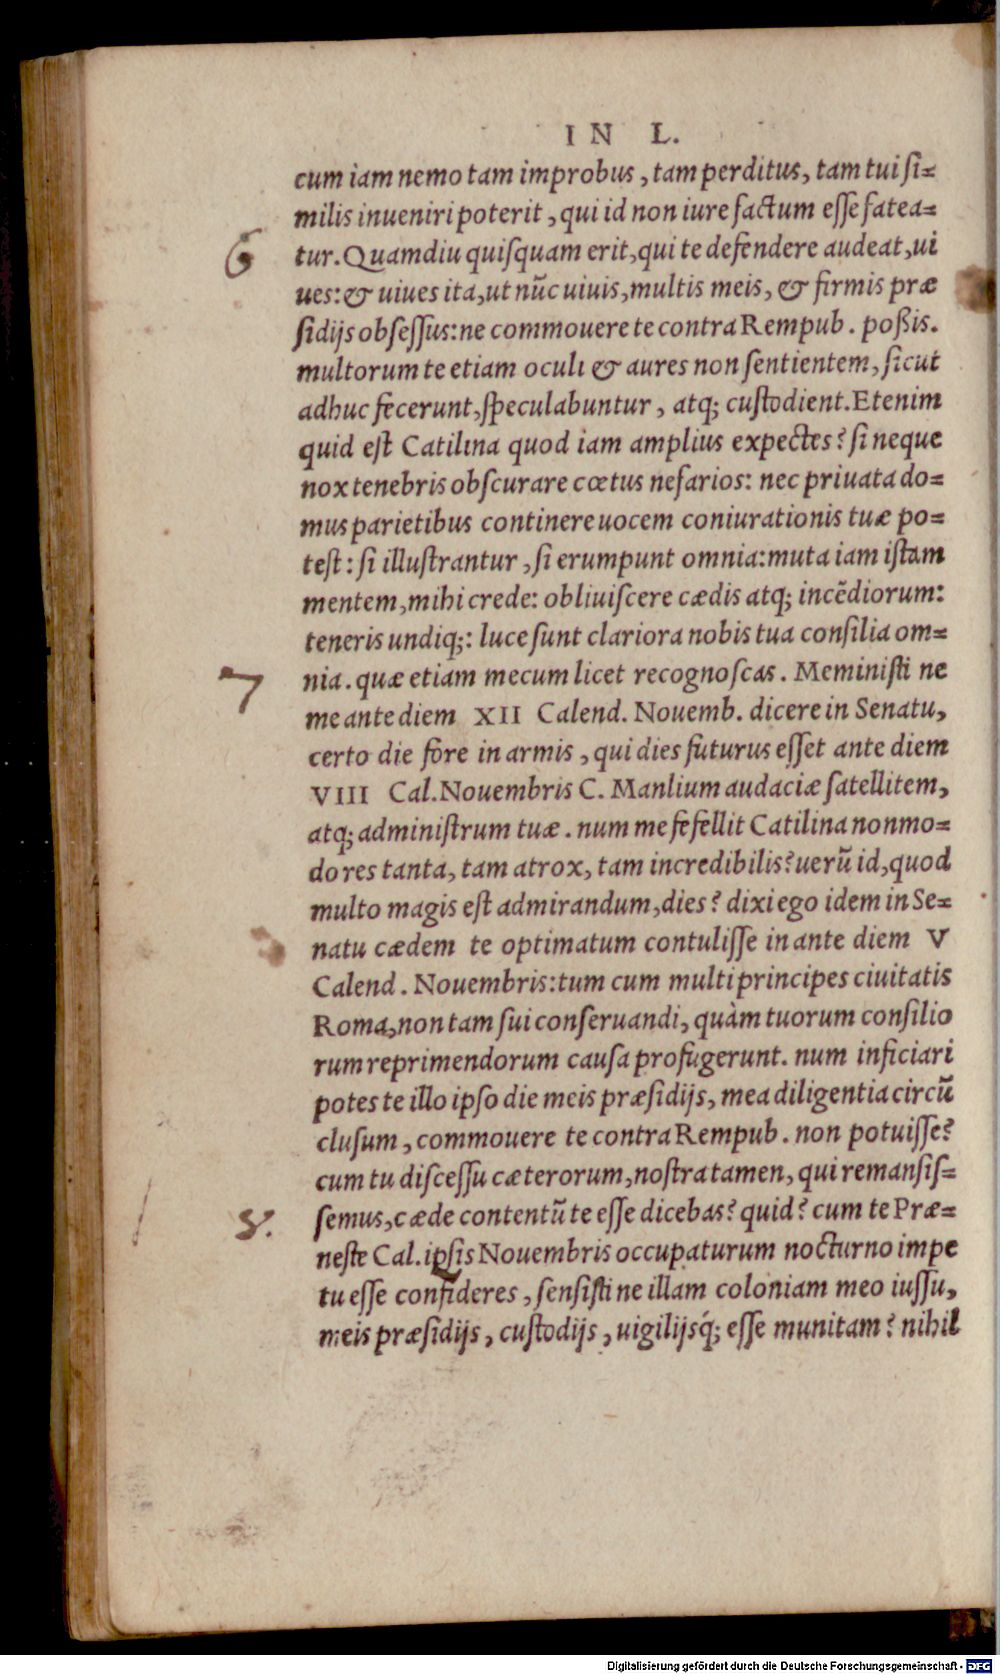 IN L.
cum iam nemo tam improbus, tam perditus, tam tui ſi=
milis inueniri poterit, qui id non iure factum eſſe fatea=
6 tur. Quamdiu quiſquam erit, qui te defendere audeat, ui
ues: & uiues ita, ut nūc uiuis, multis meis, & firmis præ
ſidijs obſeſſus: ne commouere te contra Rempub. poßis.
multorum te etiam oculi & aures non ſentientem, ſicut
adhuc fecerunt, ſpeculabuntur, atq; cuſtodient. Etenim
quid eſt Catilina quod iam amplius expectes? ſi neque
nox tenebris obſcurare cœtus nefarios: nec priuata do=
mus parietibus continere uocem coniurationis tuæ po=
teſt: ſi illuſtrantur, ſi erumpunt omnia: muta iam iſtam
mentem, mihi crede: obliuiſcere cædis atq; incēdiorum:
teneris undiq;: luce ſunt clariora nobis tua conſilia om=
7 nia. quæ etiam mecum licet recognoſcas. Meminiſti ne
me ante diem XII Calend. Nouemb. dicere in Senatu,
certo die fore in armis, qui dies futurus eſſet ante diem
VIII Cal. Nouembris C. Manlium audaciæ ſatellitem,
atq; adminiſtrum tuæ. num me fefellit Catilina non mo=
do res tanta, tam atrox, tam incredibilis? uerū id, quod
multo magis eſt admirandum, dies? dixi ego idem in Se=
natu cædem te optimatum contuliſſe in ante diem V
Calend. Nouembris: tum cum multi principes ciuitatis
Roma, non tam ſui conſeruandi, quàm tuorum conſilio
rum reprimendorum cauſa profugerunt. num inficiari
potes te illo ipſo die meis præſidijs, mea diligentia circū
cluſum, commouere te contra Rempub. non potuiſſe?
cum tu diſceſſu cæterorum, noſtra tamen, qui remanſiſ=
8. ſemus, cæde contentū te eſſe dicebas? quid? cum te Præ=
neſte Cal. ipſis Nouembris occupaturum nocturno impe
tu eſſe confideres, ſenſiſti ne illam coloniam meo iuſſu,
meis præſidijs, cuſtodijs, uigilijsq́; eſſe munitam? nihil
Digitalisierung gefördert durch die Deutsche Forschungsgemeinschaft - DFG